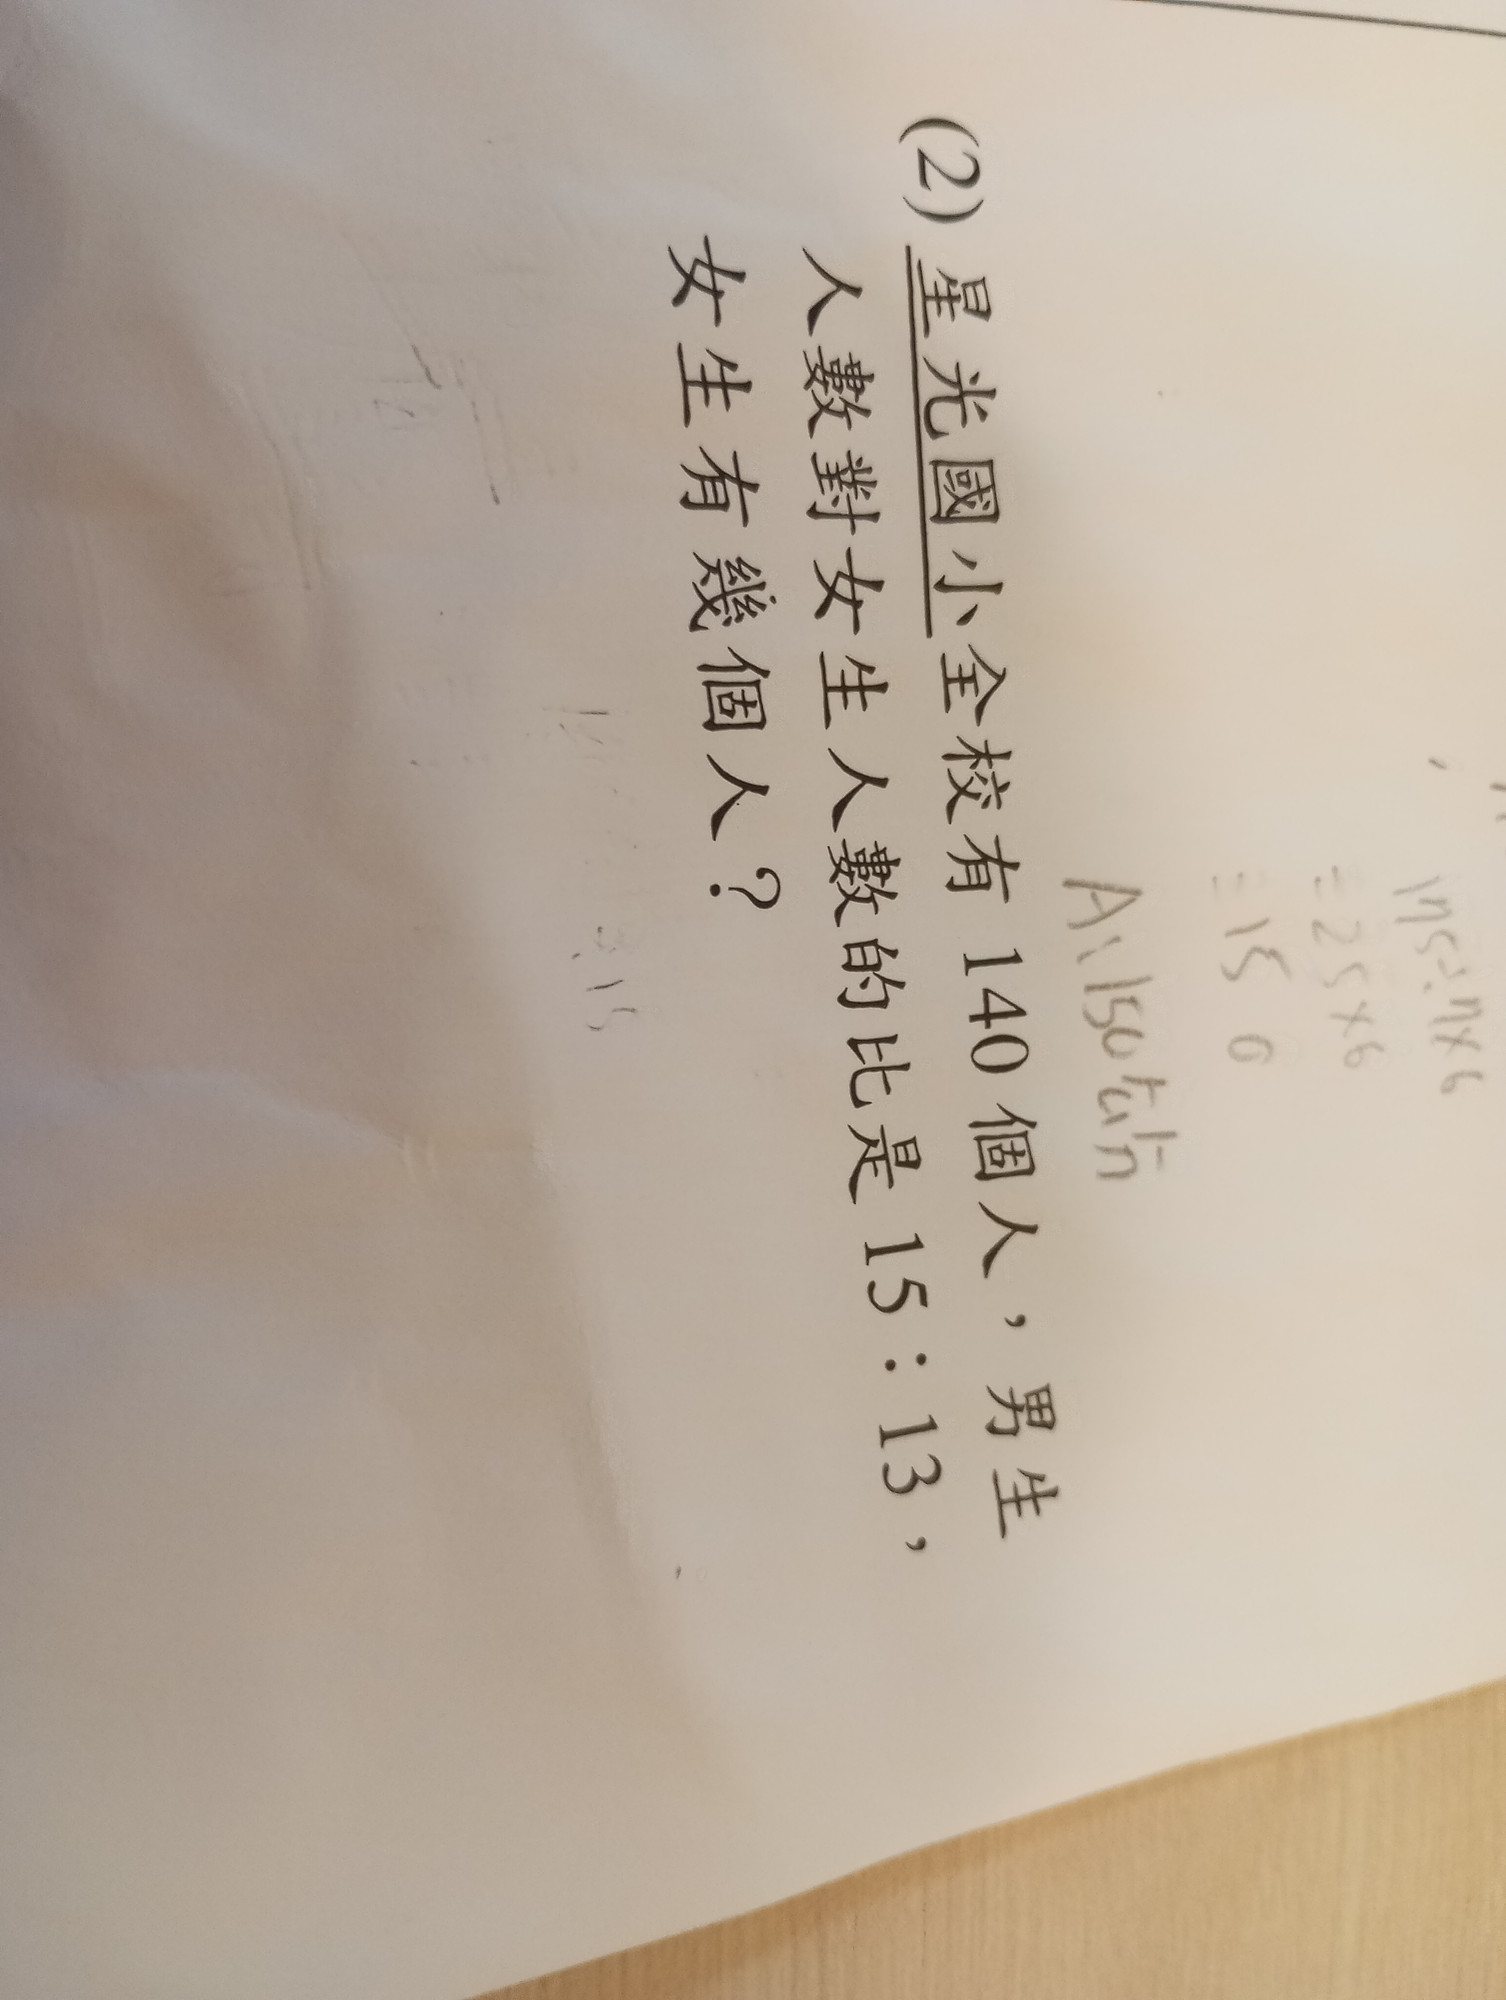 = 25 × 6
= 15 0
(2) 星光國小全校有 140 個人，男生
人數對女生人數的比是 15：13，
女生有幾個人？